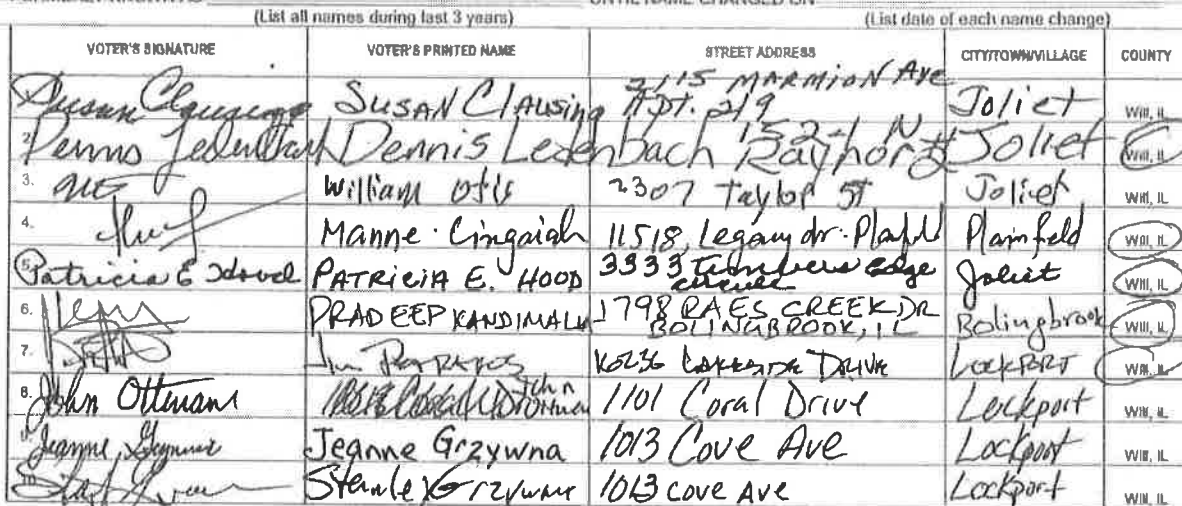 UNTIL NAME CHANGED ON
(List all names during last 3 years) (List date of each name change)
VOTER'S SIGNATURE VOTER'S PRINTED NAME STREET ADDRESS CITY/TOWN/VILLAGE COUNTY
2115 MARMION AVE
Susan Clausing SUSAN ClAusing APT. 219 Joliet Will, IL
Dennis Ledenbach 1524 N Raynor Joliet Will, IL
3. William Otis 2307 Taylor ST Joliet Will, IL
4. Manne Lingaiah 11518, Legacy dr. Plainfield Will, IL
5. Patricia E Hood PATRICIA E. HOOD 3333 Timbers edge circle Joliet Will, IL
6. PRADEEP KANDIMALLA 1798 RAES CREEK DR Bolingbrook Will, IL
BOLINGBROOK, IL
7. DRIVE LOCKPORT Will, IL
8. John Ottman John 1101 Coral Drive Lockport Will, IL
9. Jeanne Grzywna 1013 Cove Ave Lockport Will, IL
10. Grzywna 1013 cove Ave Lockport Will, IL